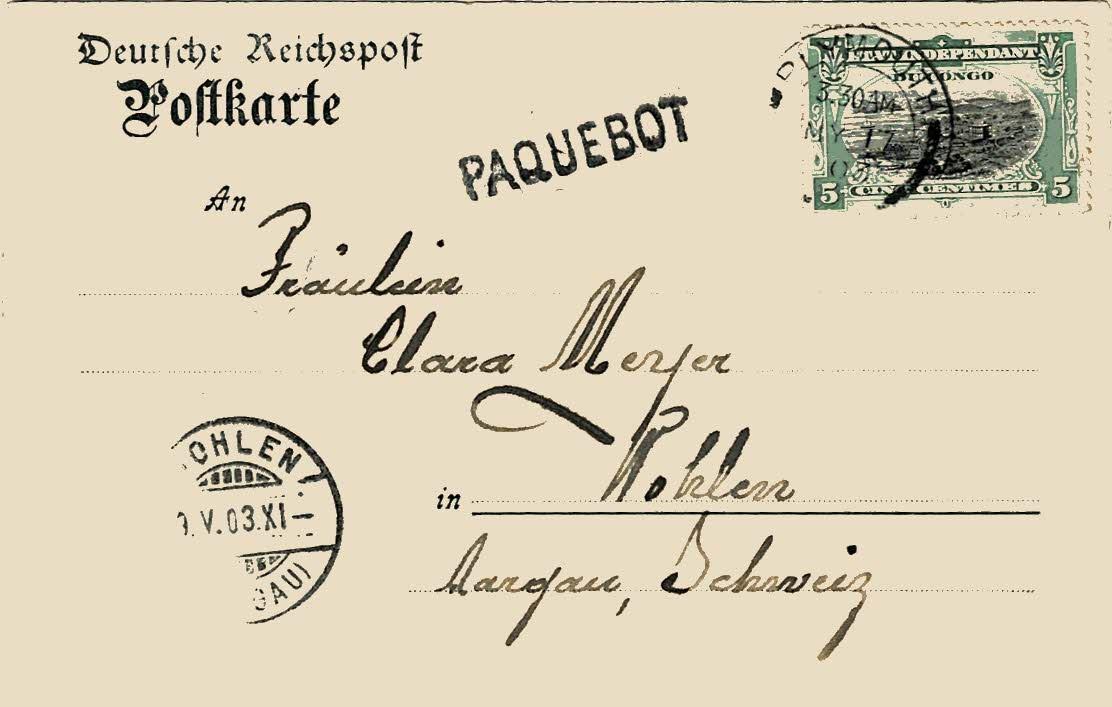 Deutsche Reichspost
Postkarte
PAQUEBOT
PLYMOUTH
3.30AM
MY 17
03
ETAT INDEPENDANT
DU CONGO
5 CINQ CENTIMES 5
An
Fräulein
Clara Meyer
in Wohlen
Aargau, Schweiz
WOHLEN
V.03.XI-
GAU)